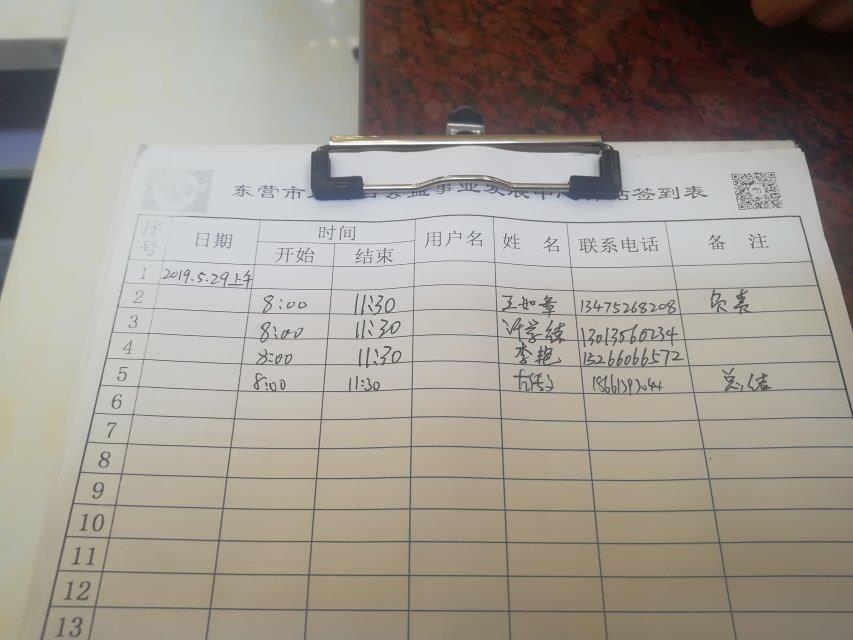 东营市 公益事业发展中心 站签到表
序号 日期 时间 用户名 姓 名 联系电话 备 注
开始 结束
1 2019.5.29上午
2 8:00 11:30 王如章 13475268208 负责
3 8:00 11:30 许学续 13013560234
4 8:00 11:30 李艳 15266066572
5 8:00 11:30 总结
6
7
8
9
10
11
12
13